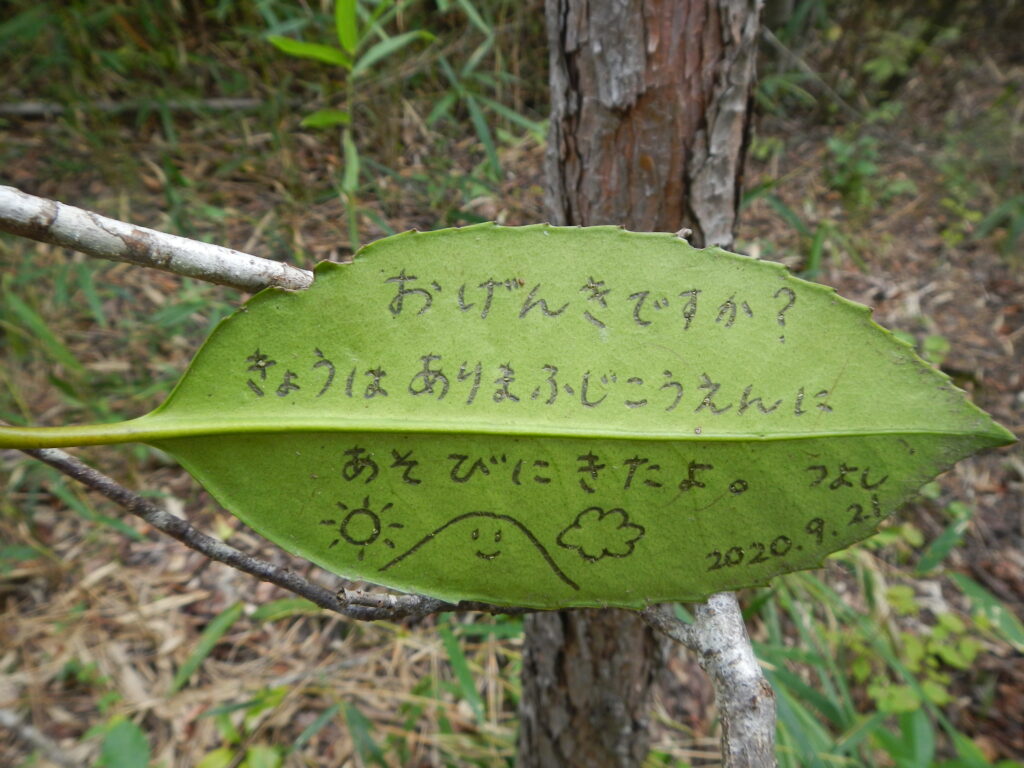 おげんきですか?
きょうは ありまふじこうえんに
あそびにきたよ。 つよし
2020.9.21